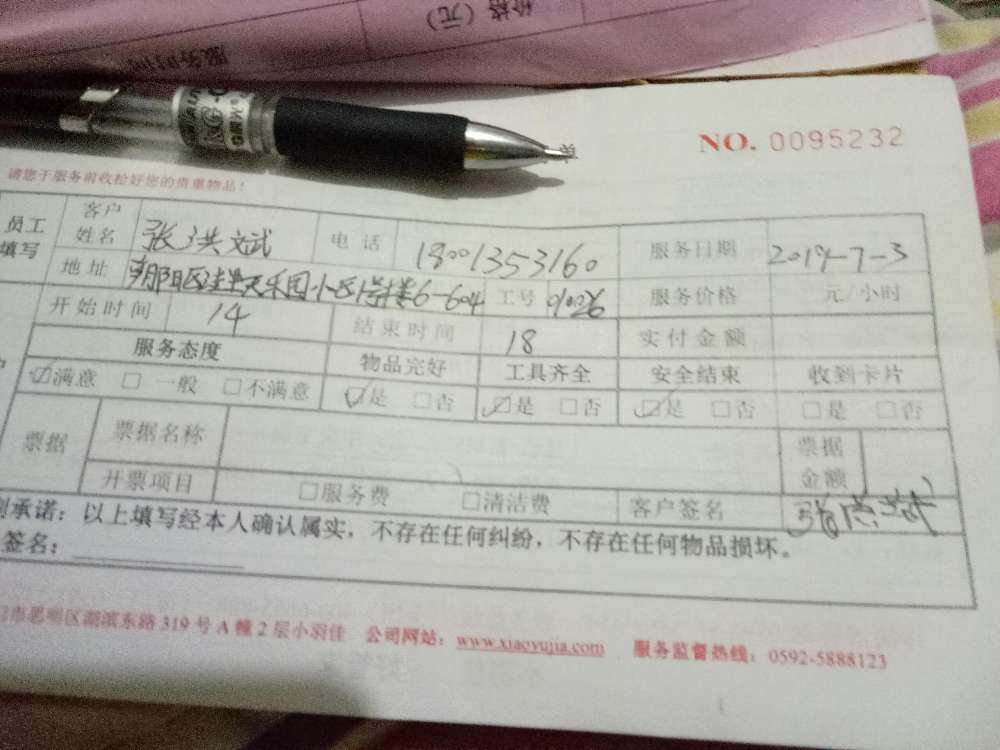 价格(元)
服务时间
单
NO. 0095232
请您于服务前收拾好您的贵重物品!
员工填写 客户姓名 张洪斌 电话 18001353160 服务日期 2019-7-3
地址 朝阳区 天乐园小区 6-604 工号 91026 服务价格 元/小时
开始时间 14 结束时间 18 实付金额
服务态度 物品完好 工具齐全 安全结束 收到卡片
☑满意 □一般 □不满意 ☑是 □否 ☑是 □否 ☑是 □否 □是 □否
票据 票据名称 票据金额
开票项目 □服务费 □清洁费 客户签名
承诺:以上填写经本人确认属实,不存在任何纠纷,不存在任何物品损坏。
签名:
市思明区湖滨东路319号A幢2层小羽佳 公司网站:www.xiaoyujia.com 服务监督热线:0592-5888123